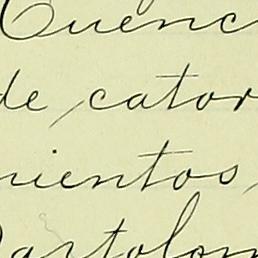 Cuenc
de cator
mientos,
Bartolom